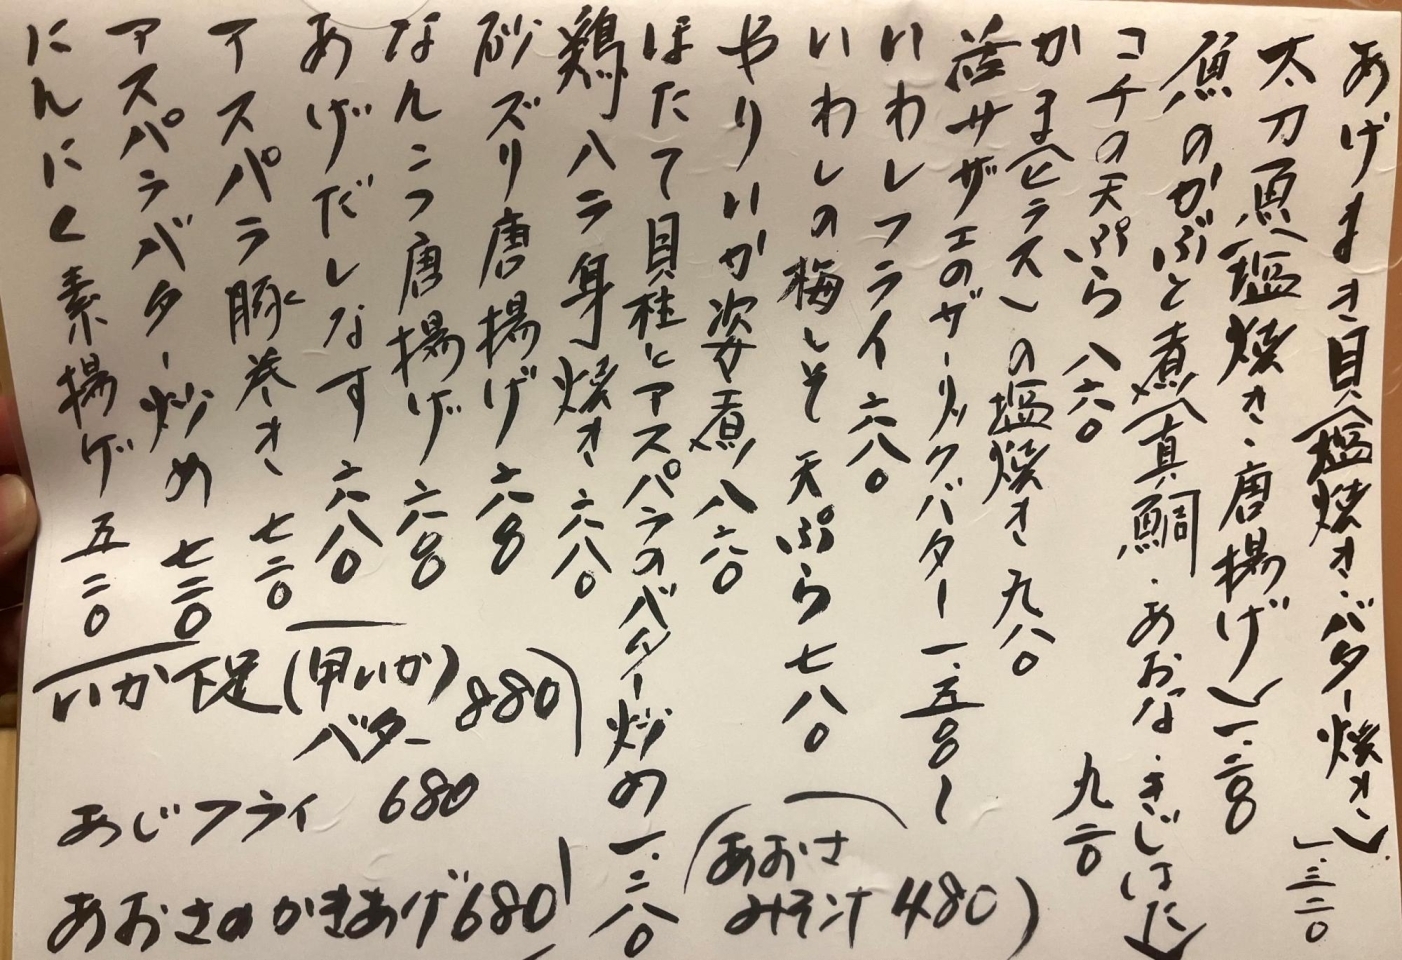 あげまき貝(塩焼き・バター焼き) 一.三二〇
太刀魚(塩焼き・唐揚げ) 一.二〇〇
魚のかぶと煮(真鯛・あおな・きじはた) 九二〇
コチの天ぷら 八六〇
かま(ヒラス)の塩焼き 九八〇
活サザエのガーリックバター 一.五〇〇〜
いわしフライ 六八〇
いわしの梅しそ天ぷら 七八〇
やりいか姿煮 八六〇
ほたて貝柱とアスパラのバター炒め 一.二八〇
鶏ハラ身焼き 六八〇
砂ズリ唐揚げ 六八〇
なんこつ唐揚げ 六八〇
あげだしなす 六八〇
アスパラ豚巻き 七二〇
アスパラバター炒め 七二〇
にんにく素揚げ 五二〇
いか下足(甲いか)
バター 880
あじフライ 680
あおさのかきあげ 680
(あおさ
みそ汁 480)